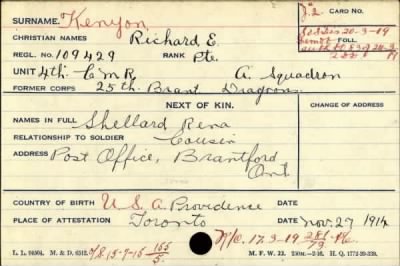 SURNAME. Kenyon
J.2 CARD NO.
CHRISTIAN NAMES Richard E.
SOS Dis 20-3-19
FOLL
REGL. NO. 109429 RANK Pte.
UNIT 4th. C M R. A. Squadron
FORMER CORPS 25th. Brant Dragoons
NEXT OF KIN. CHANGE OF ADDRESS
NAMES IN FULL Shellard Rena
RELATIONSHIP TO SOLDIER Cousin
ADDRESS Post Office, Brantford
Ont
COUNTRY OF BIRTH U. S. A. Providence DATE
PLACE OF ATTESTATION Toronto DATE Nov. 27 1914
L. L. 94504. M. & D. 6312. M. F. W. 22. H. Q. 1772-39-339.